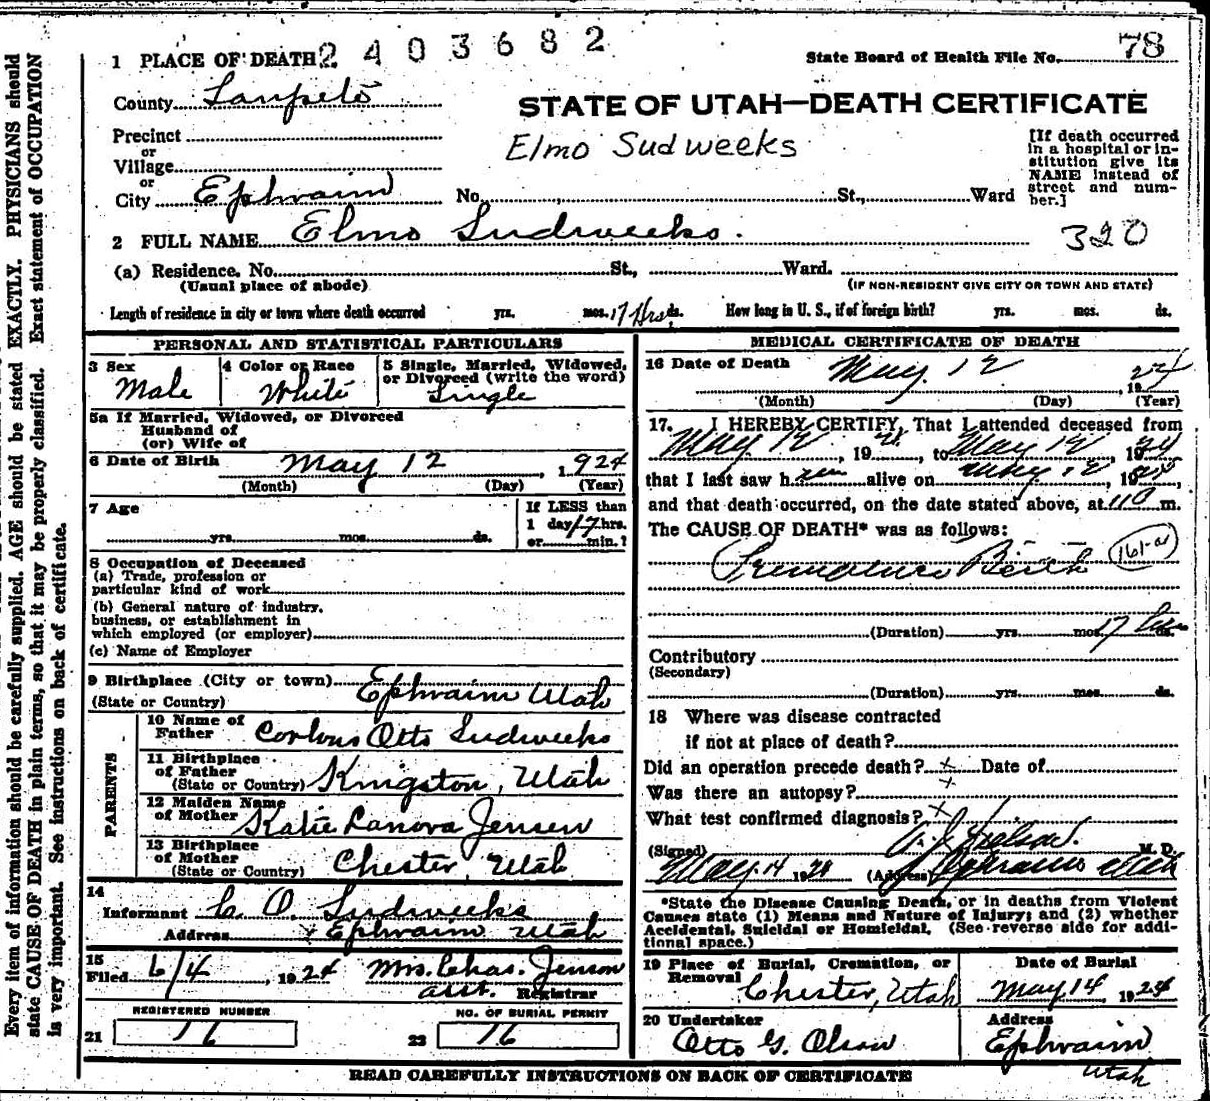 2403682
State Board of Health File No. 78
1 PLACE OF DEATH
County Sanpete
STATE OF UTAH—DEATH CERTIFICATE
Precinct
or
Village
or
City Ephraim No. St., Ward
Elmo Sudweeks
[If death occurred
in a hospital or in-
stitution give its
NAME instead of
street and num-
ber.]
2 FULL NAME Elmo Sudweeks.
320
(a) Residence. No. St., Ward.
(Usual place of abode) (IF NON-RESIDENT GIVE CITY OR TOWN AND STATE)
Length of residence in city or town where death occurred yrs. mos. 17 Hrs ds. How long in U. S., if of foreign birth? yrs. mos. ds.
PERSONAL AND STATISTICAL PARTICULARS
3 Sex
Male
4 Color or Race
White
5 Single, Married, Widowed,
or Divorced (write the word)
Single
5a If Married, Widowed, or Divorced
Husband of
(or) Wife of
6 Date of Birth May 12, 1924
(Month) (Day) (Year)
7 Age
yrs. mos. ds.
If LESS than
1 day 17 hrs.
or min.?
8 Occupation of Deceased
(a) Trade, profession or
particular kind of work
(b) General nature of industry,
business, or establishment in
which employed (or employer)
(c) Name of Employer
9 Birthplace (City or town) Ephraim Utah
(State or Country)
PARENTS
10 Name of
Father Otto Sudweeks
11 Birthplace
of Father
(State or Country) Kingston, Utah
12 Maiden Name
of Mother Katie Lanova Jensen
13 Birthplace
of Mother
(State or Country) Chester, Utah
14
Informant C. O. Sudweeks
Address Ephraim Utah
15
Filed 6/4, 1924 Mrs. Chas. Jenson
asst. Registrar
REGISTERED NUMBER
21 16
NO. OF BURIAL PERMIT
22 16
MEDICAL CERTIFICATE OF DEATH
16 Date of Death May 12, 1924
(Month) (Day) (Year)
17. I HEREBY CERTIFY, That I attended deceased from
May 12, 192, to May 12, 1924
that I last saw h alive on May 12, 19
and that death occurred, on the date stated above, at m.
The CAUSE OF DEATH* was as follows:
Premature Birth 161-a
(Duration) yrs. mos. 17 ds.
Contributory
(Secondary)
(Duration) yrs. mos. ds.
18 Where was disease contracted
if not at place of death?
Did an operation precede death? x Date of
Was there an autopsy? x
What test confirmed diagnosis? x
(Signed) M. D.
May 14 19 (Address) Ephraim Utah
*State the Disease Causing Death, or in deaths from Violent
Causes state (1) Means and Nature of Injury; and (2) whether
Accidental, Suicidal or Homicidal. (See reverse side for addi-
tional space.)
19 Place of Burial, Cremation, or
Removal
Chester, Utah
Date of Burial
May 14, 1924
20 Undertaker
Otto G. Olson
Address
Ephraim
Utah
READ CAREFULLY INSTRUCTIONS ON BACK OF CERTIFICATE
Every item of information should be carefully supplied. AGE should be stated EXACTLY. PHYSICIANS should
state CAUSE OF DEATH in plain terms, so that it may be properly classified. Exact statement of OCCUPATION
is very important. See instructions on back of certificate.